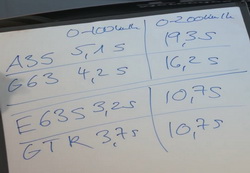 0-100km/h 0-200km/h
A35 5,1s 19,3s
G63 4,2s 16,2s
E63S 3,2s 10,7s
GTR 3,7s 10,7s